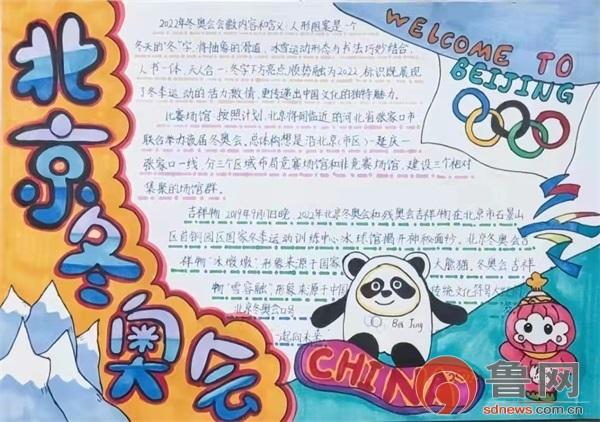 北京冬奥会
WELCOME TO
BEIJING
2022年冬奥会会徽内容和含义:人形图案是一个
冬天的"冬"字,将抽象的滑道、冰雪运动形态与书法巧妙结合,
人书一体,天人合一,冬字下方亮点,顺势融为2022,标识既展现
了冬季运动的活力激情,更传递出中国文化的独特魅力。
比赛场馆:按照计划,北京将同临近的河北省张家口市
联合举办首届冬奥会,总体构想是沿北京(市区)—延庆—
张家口一线,分三个区域布局竞赛场馆和非竞赛场馆,建设三个相对
集聚的场馆群。
吉祥物:2019年9月17日晚,2022年北京冬奥会和残奥会吉祥物在北京市石景山
区首钢园区国家冬季运动训练中心冰球馆揭开神秘面纱。北京冬奥会吉
祥物"冰墩墩"形象来源于国家 大熊猫,冬奥会吉祥
物"雪容融"形象来源于中国 传统文化符号
北京冬奥会口号
一起向未来
Bei Jing
CHINA
鲁网
sdnews.com.cn